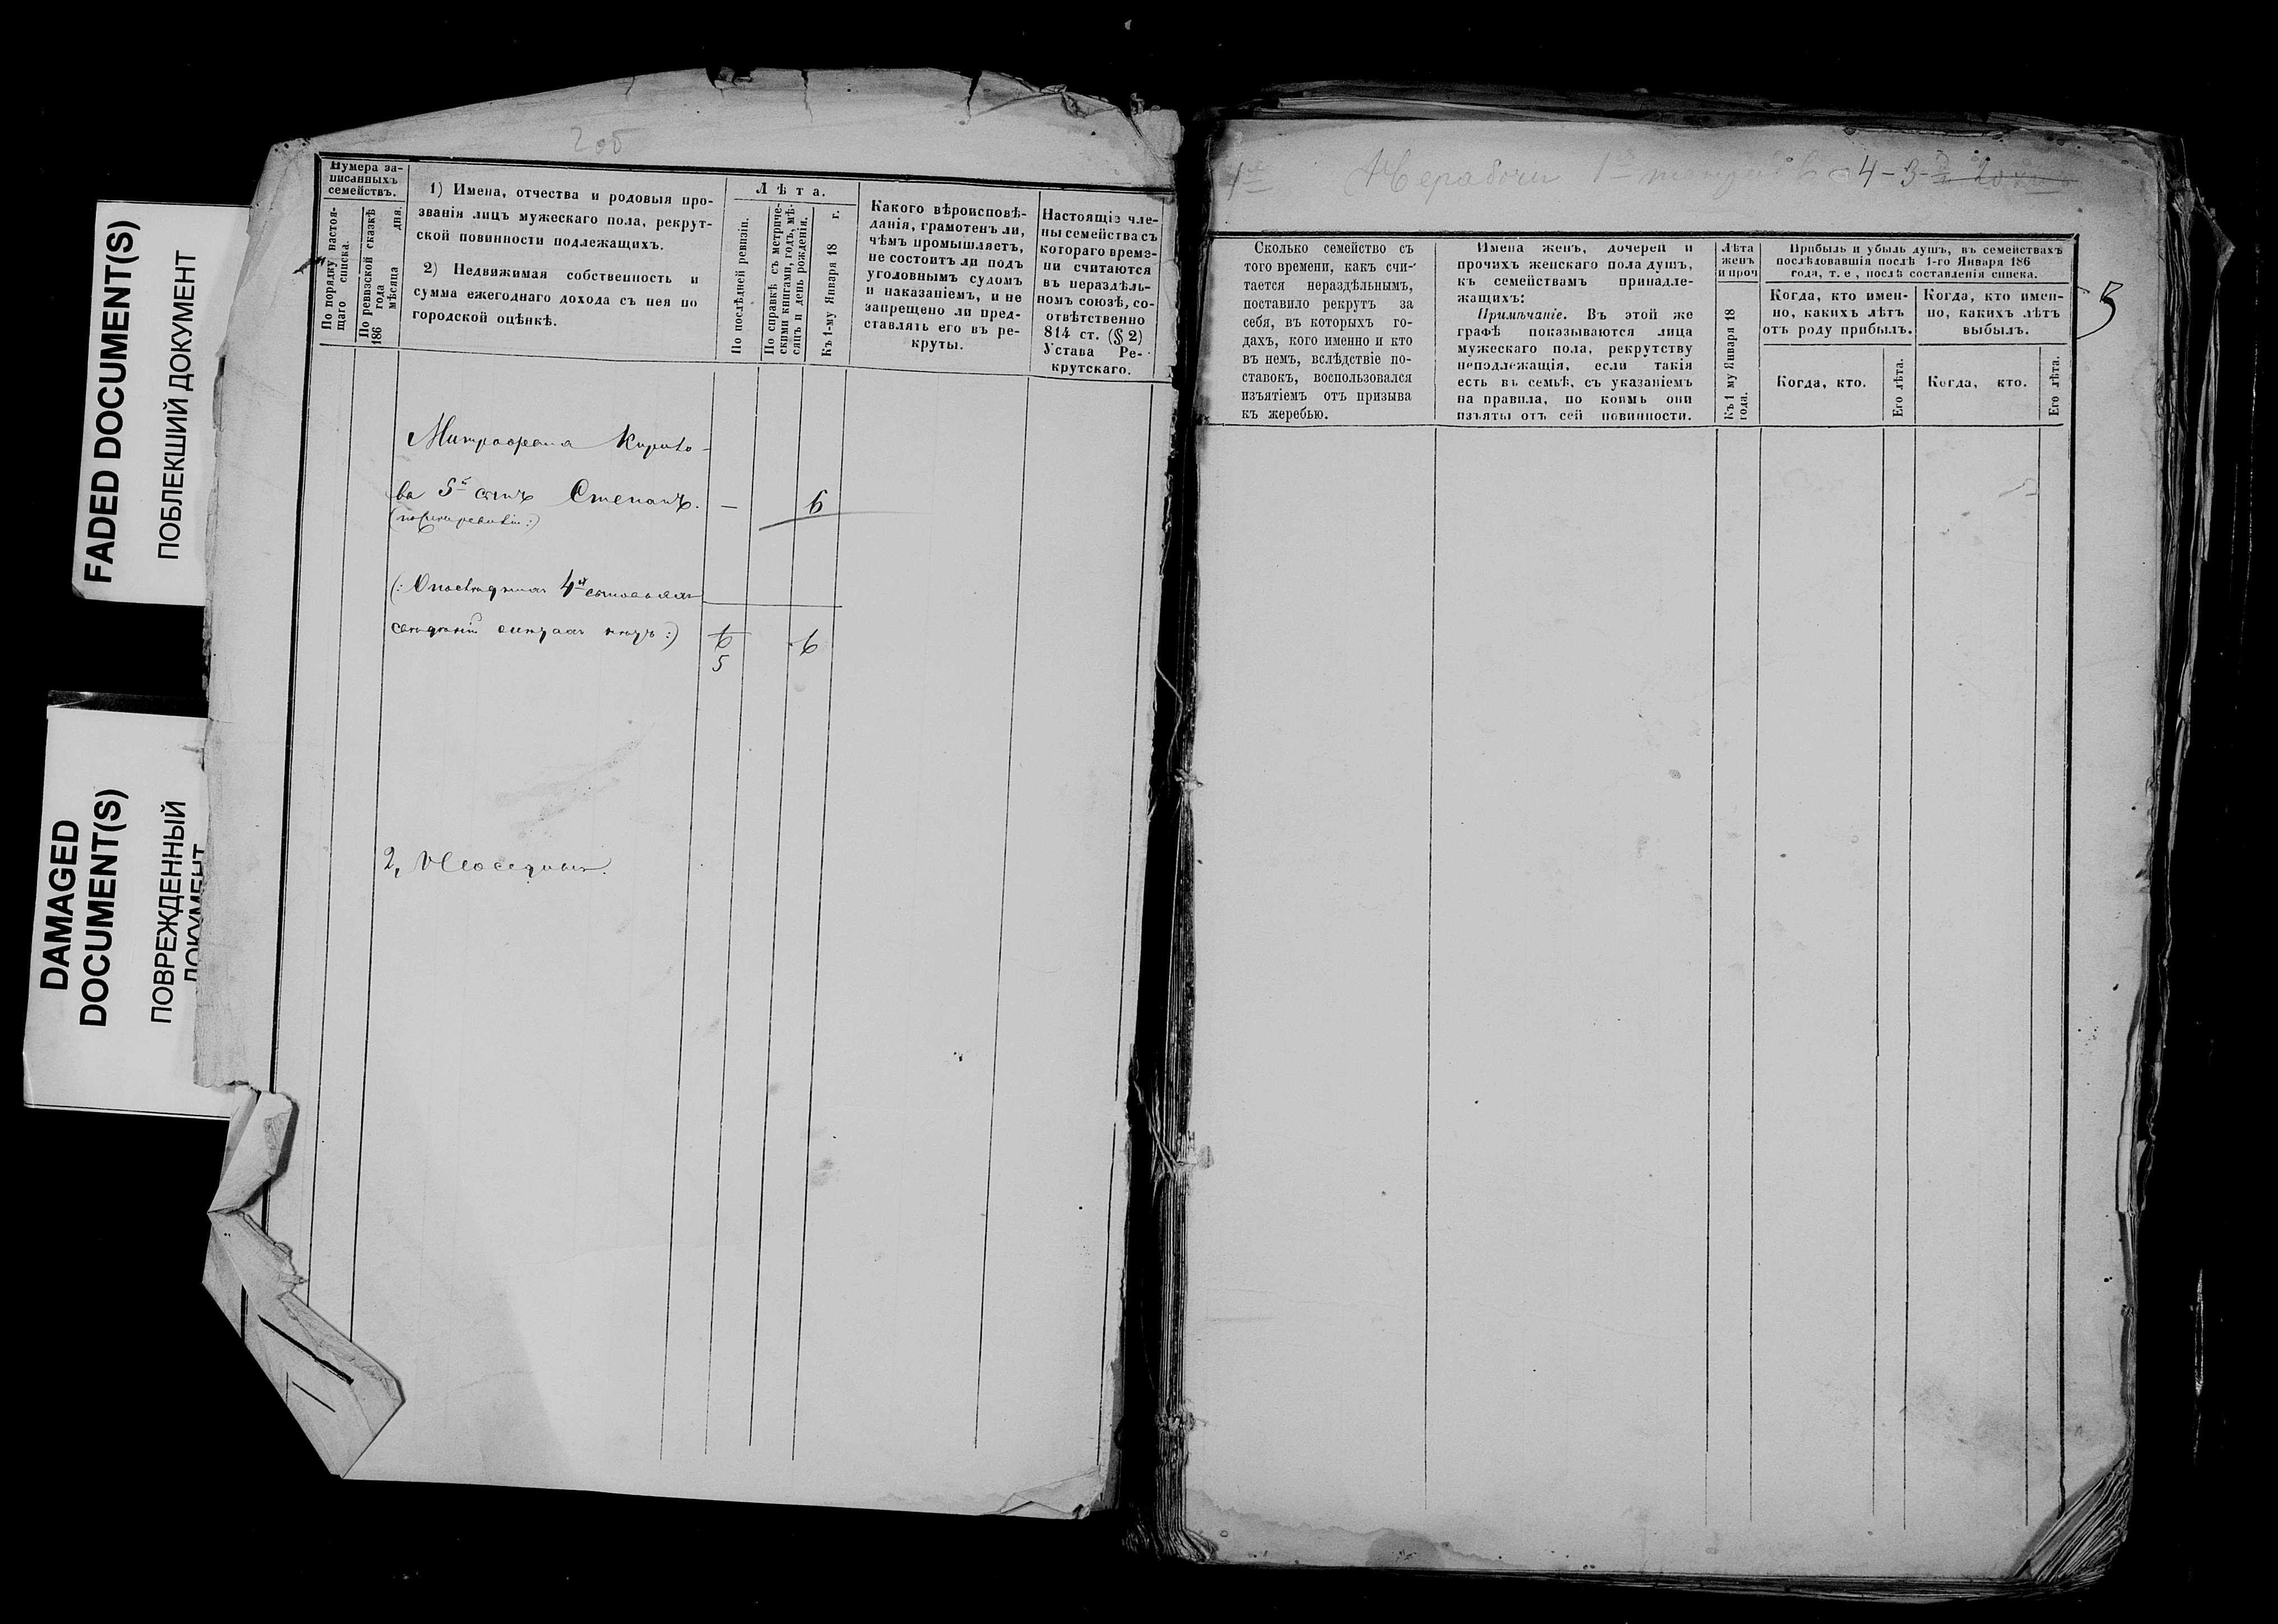 FADED DOCUMENT(S)
ПОБЛЕКШИЙ ДОКУМЕНТ
DAMAGED
DOCUMENT(S)
ПОВРЕЖДЕННЫЙ
ДОКУМЕНТ
2 об
Нумера за-
писанныхъ
семействъ.
По порядку настоя-
щаго списка.
По ревизской сказкѣ
186 года
мѣсяца дня.
1) Имена, отчества и родовыя про-
званія лицъ мужескаго пола, рекрут-
ской повинности подлежащихъ.
2) Недвижимая собственность и
сумма ежегоднаго дохода съ нея по
городской оцѣнкѣ.
Лѣта.
По послѣдней ревизіи.
По справкѣ съ метриче-
скими книгами, годъ, мѣ-
сяцъ и день рожденія.
Къ 1-му Января 18 г.
Какого вѣроисповѣ-
данія, грамотенъ ли,
чѣмъ промышляетъ,
не состоитъ ли подъ
уголовнымъ судомъ
и наказаніемъ, и не
запрещено ли пред-
ставлять его въ ре-
круты.
Настоящіе чле-
ны семейства съ
котораго време-
ни считаются
въ нераздѣль-
номъ союзѣ, со-
отвѣтственно
814 ст. (§ 2)
Устава Ре-
крутскаго.
Митрофана Кирило-
ва 5й сынъ Степанъ. — 6
6 6
5
2,
1е 4-3-
Сколько семейство съ
того времени, какъ счи-
тается нераздѣльнымъ,
поставило рекрутъ за
себя, въ которыхъ го-
дахъ, кого именно и кто
въ немъ, вслѣдствіе по-
ставокъ, воспользовался
изъятіемъ отъ призыва
къ жеребью.
Имена женъ, дочерей и
прочихъ женскаго пола душъ,
къ семействамъ принадле-
жащихъ:
Примѣчаніе. Въ этой же
графѣ показываются лица
мужескаго пола, рекрутству
неподлежащія, если такія
есть въ семьѣ, съ указаніемъ
на правила, по коимъ они
изъяты отъ сей повинности.
Лѣта
женъ
и проч
Къ 1 му Января 18
года.
Прибыль и убыль душъ, въ семействахъ
послѣдовавшія послѣ 1-го Января 186
года, т. е, послѣ составленія списка.
Когда, кто имен-
но, какихъ лѣтъ
отъ роду прибылъ.
Когда, кто имен-
но, какихъ лѣтъ
выбылъ.
Когда, кто.
Его лѣта.
Когда, кто.
Его лѣта.
3